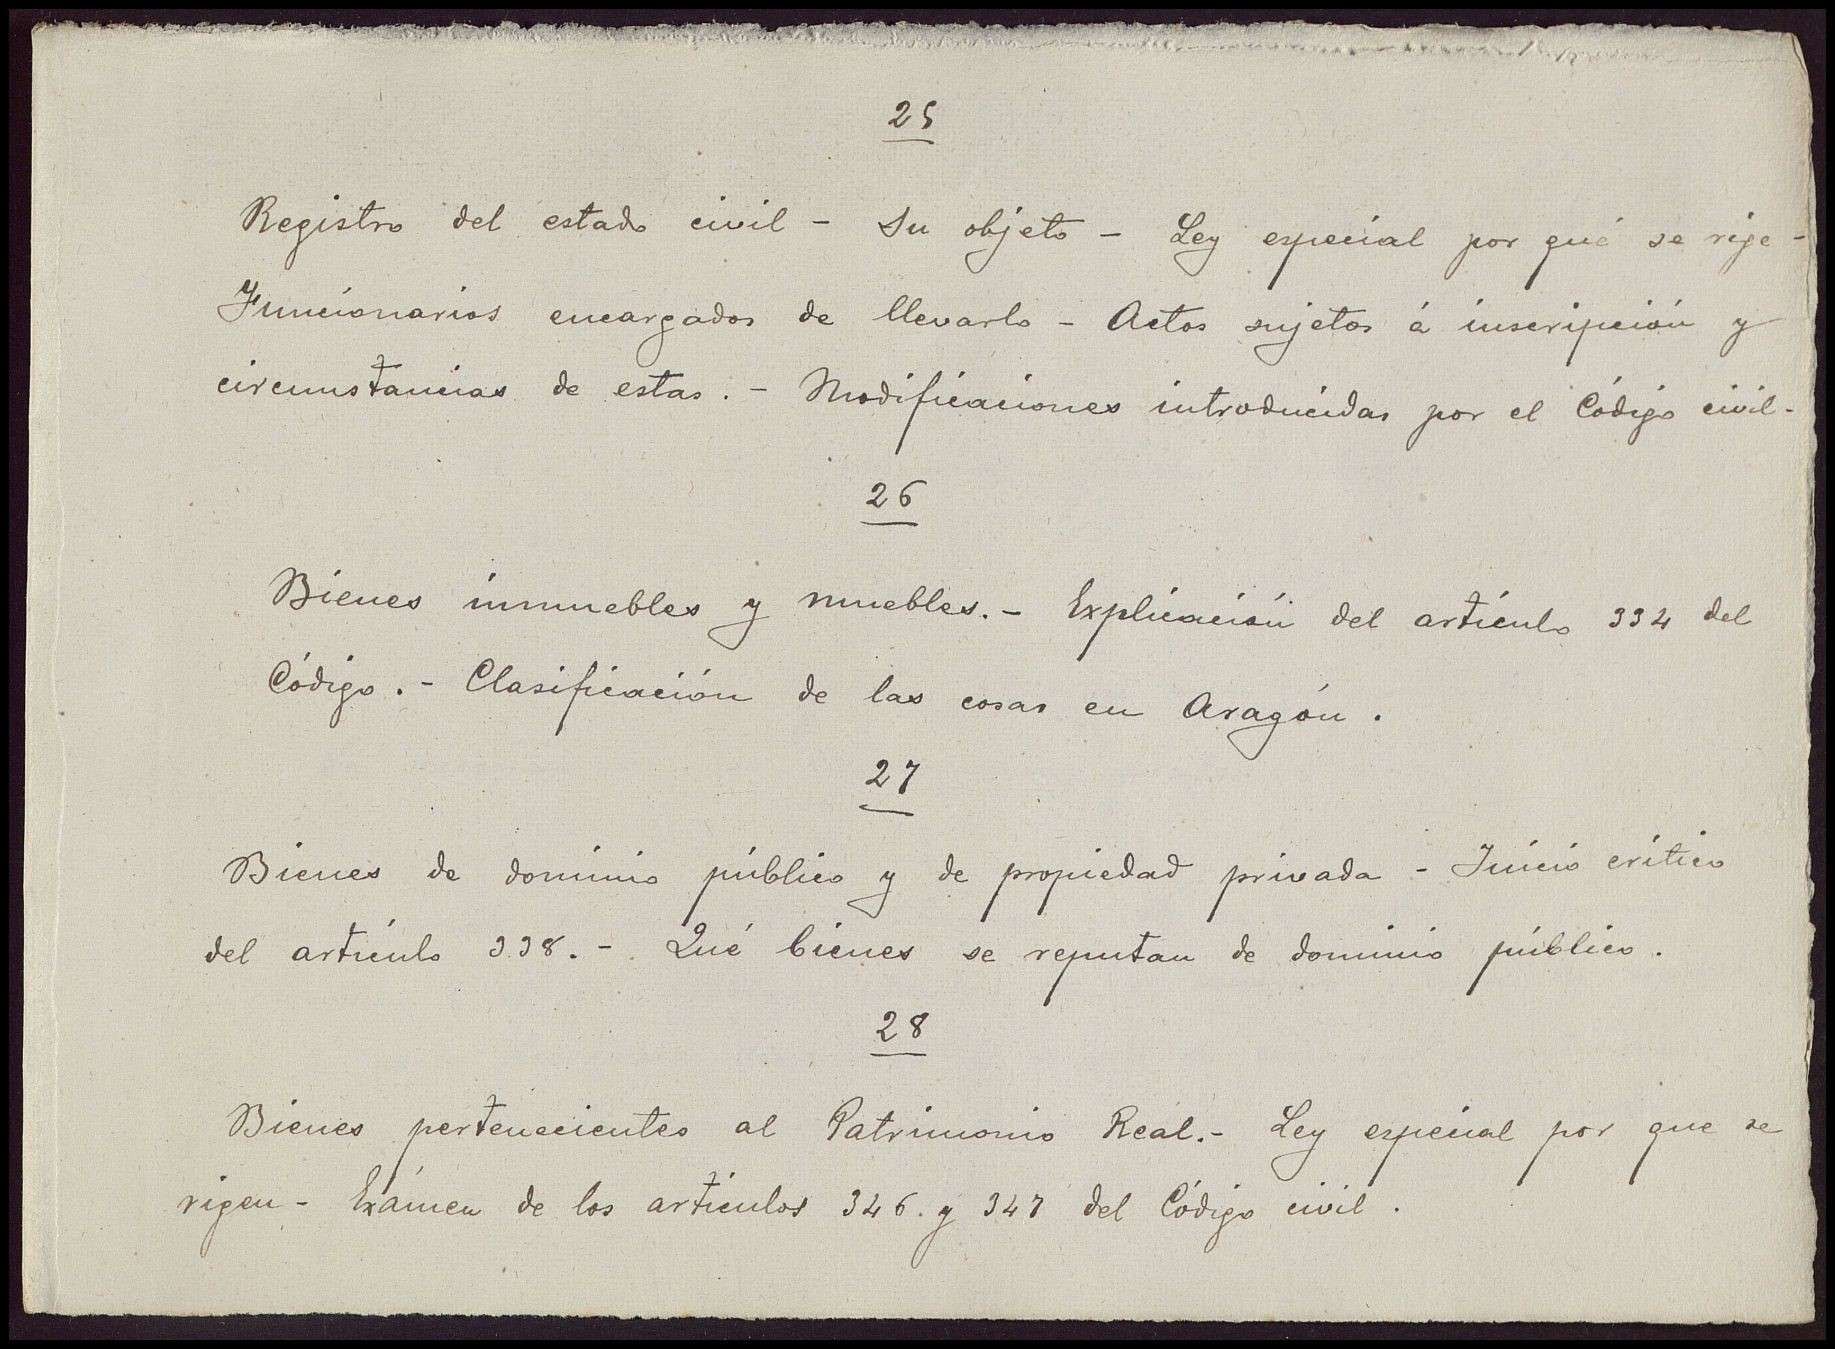 25
Registro del estado civil - Su objeto - Ley especial por qué se rige -
Funcionarios encargados de llevarlo - Actos sujetos á inscripción y
circunstancias de estas. - Modificaciones introducidas por el Código civil -
26
Bienes inmuebles y muebles. - Explicación del artículo 334 del
Código. - Clasificación de las cosas en Aragón.
27
Bienes de dominio público y de propiedad privada - Juicio crítico
del artículo 338. - Qué bienes se reputan de dominio público.
28
Bienes pertenecientes al Patrimonio Real. - Ley especial por que se
rigen - Exámen de los artículos 346 y 347 del Código civil.